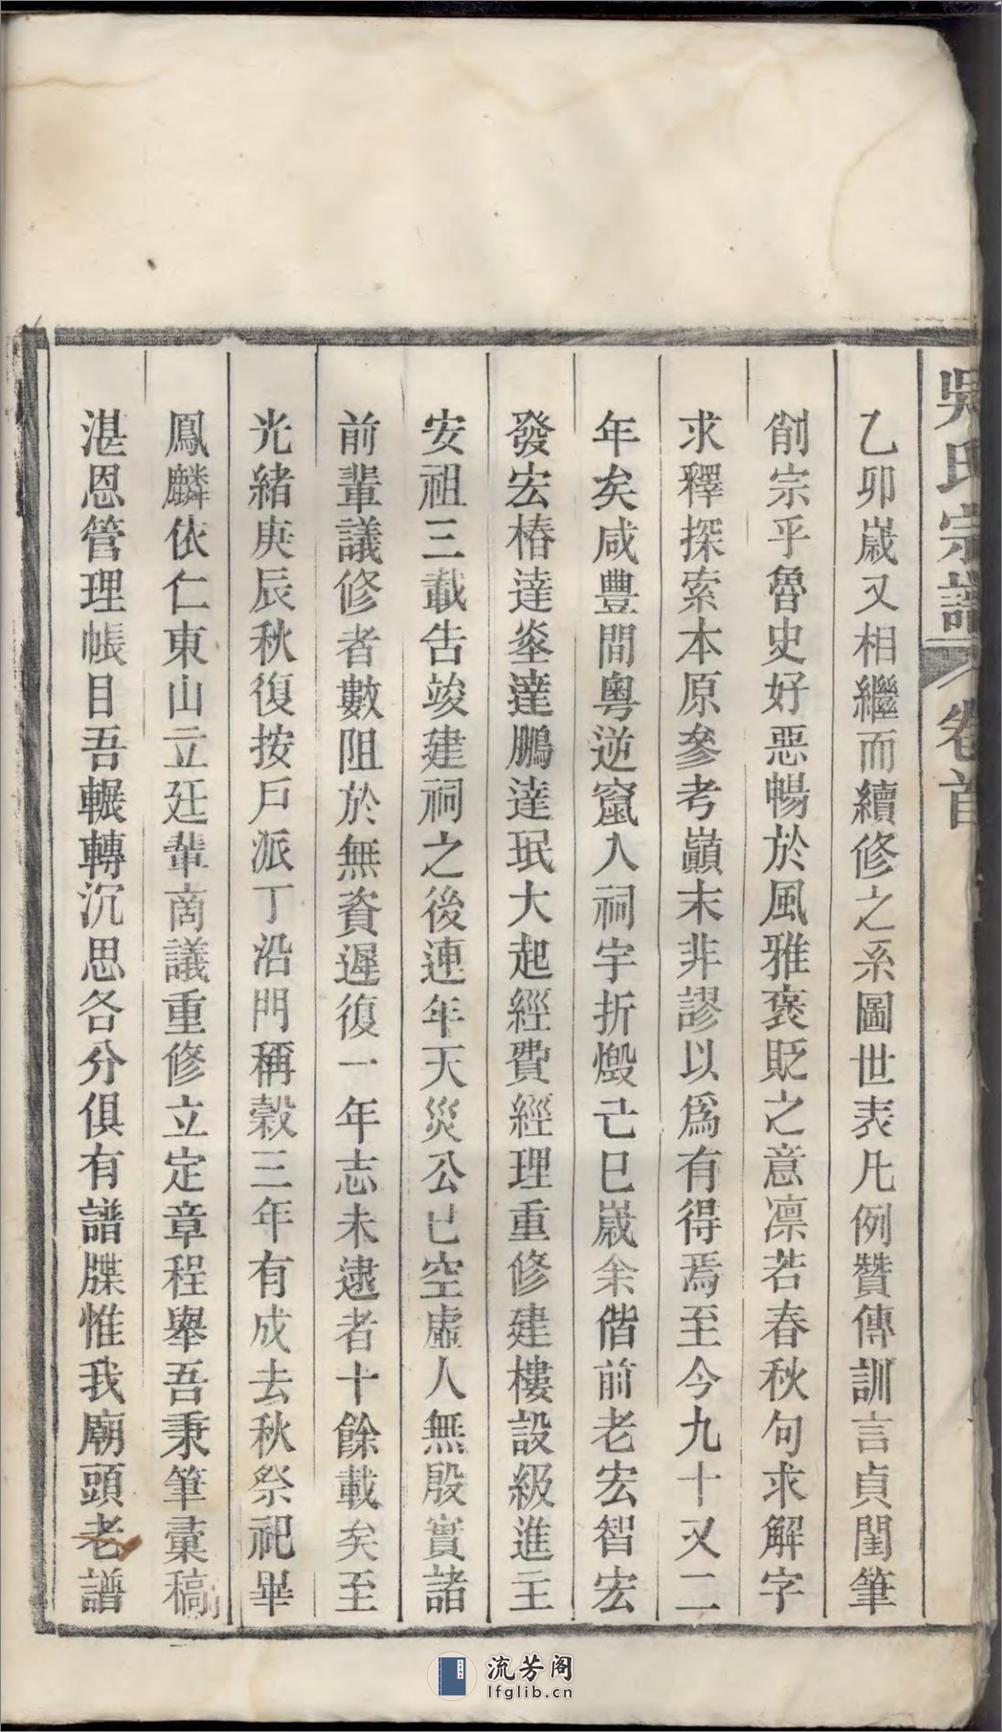 吳氏宗譜 卷首
乙卯歲又相繼而續修之系圖世表凡例贊傳訓言貞閨筆
削宗乎魯史好惡暢於風雅褒貶之意凛若春秋句求解字
求釋探索本原參考巔末非謬以爲有得焉至今九十又二
年矣咸豐間粵逆竄入祠宇折燬己巳歲余偕前老宏智宏
發宏椿達垄達鵬達珉大起經費經理重修建樓設級進主
安祖三載告竣建祠之後連年天災公已空虛人無殷實諸
前輩議修者數阻於無資遲復一年志未逮者十餘載矣至
光緒庚辰秋復按戶派丁沿門稱穀三年有成去秋祭祀畢
鳳麟依仁東山立廷輩啇議重修立定章程舉吾秉筆彙稿
湛恩管理帳目吾輾轉沉思各分俱有譜牒惟我廟頭老譜
流芳阁
lfglib.cn